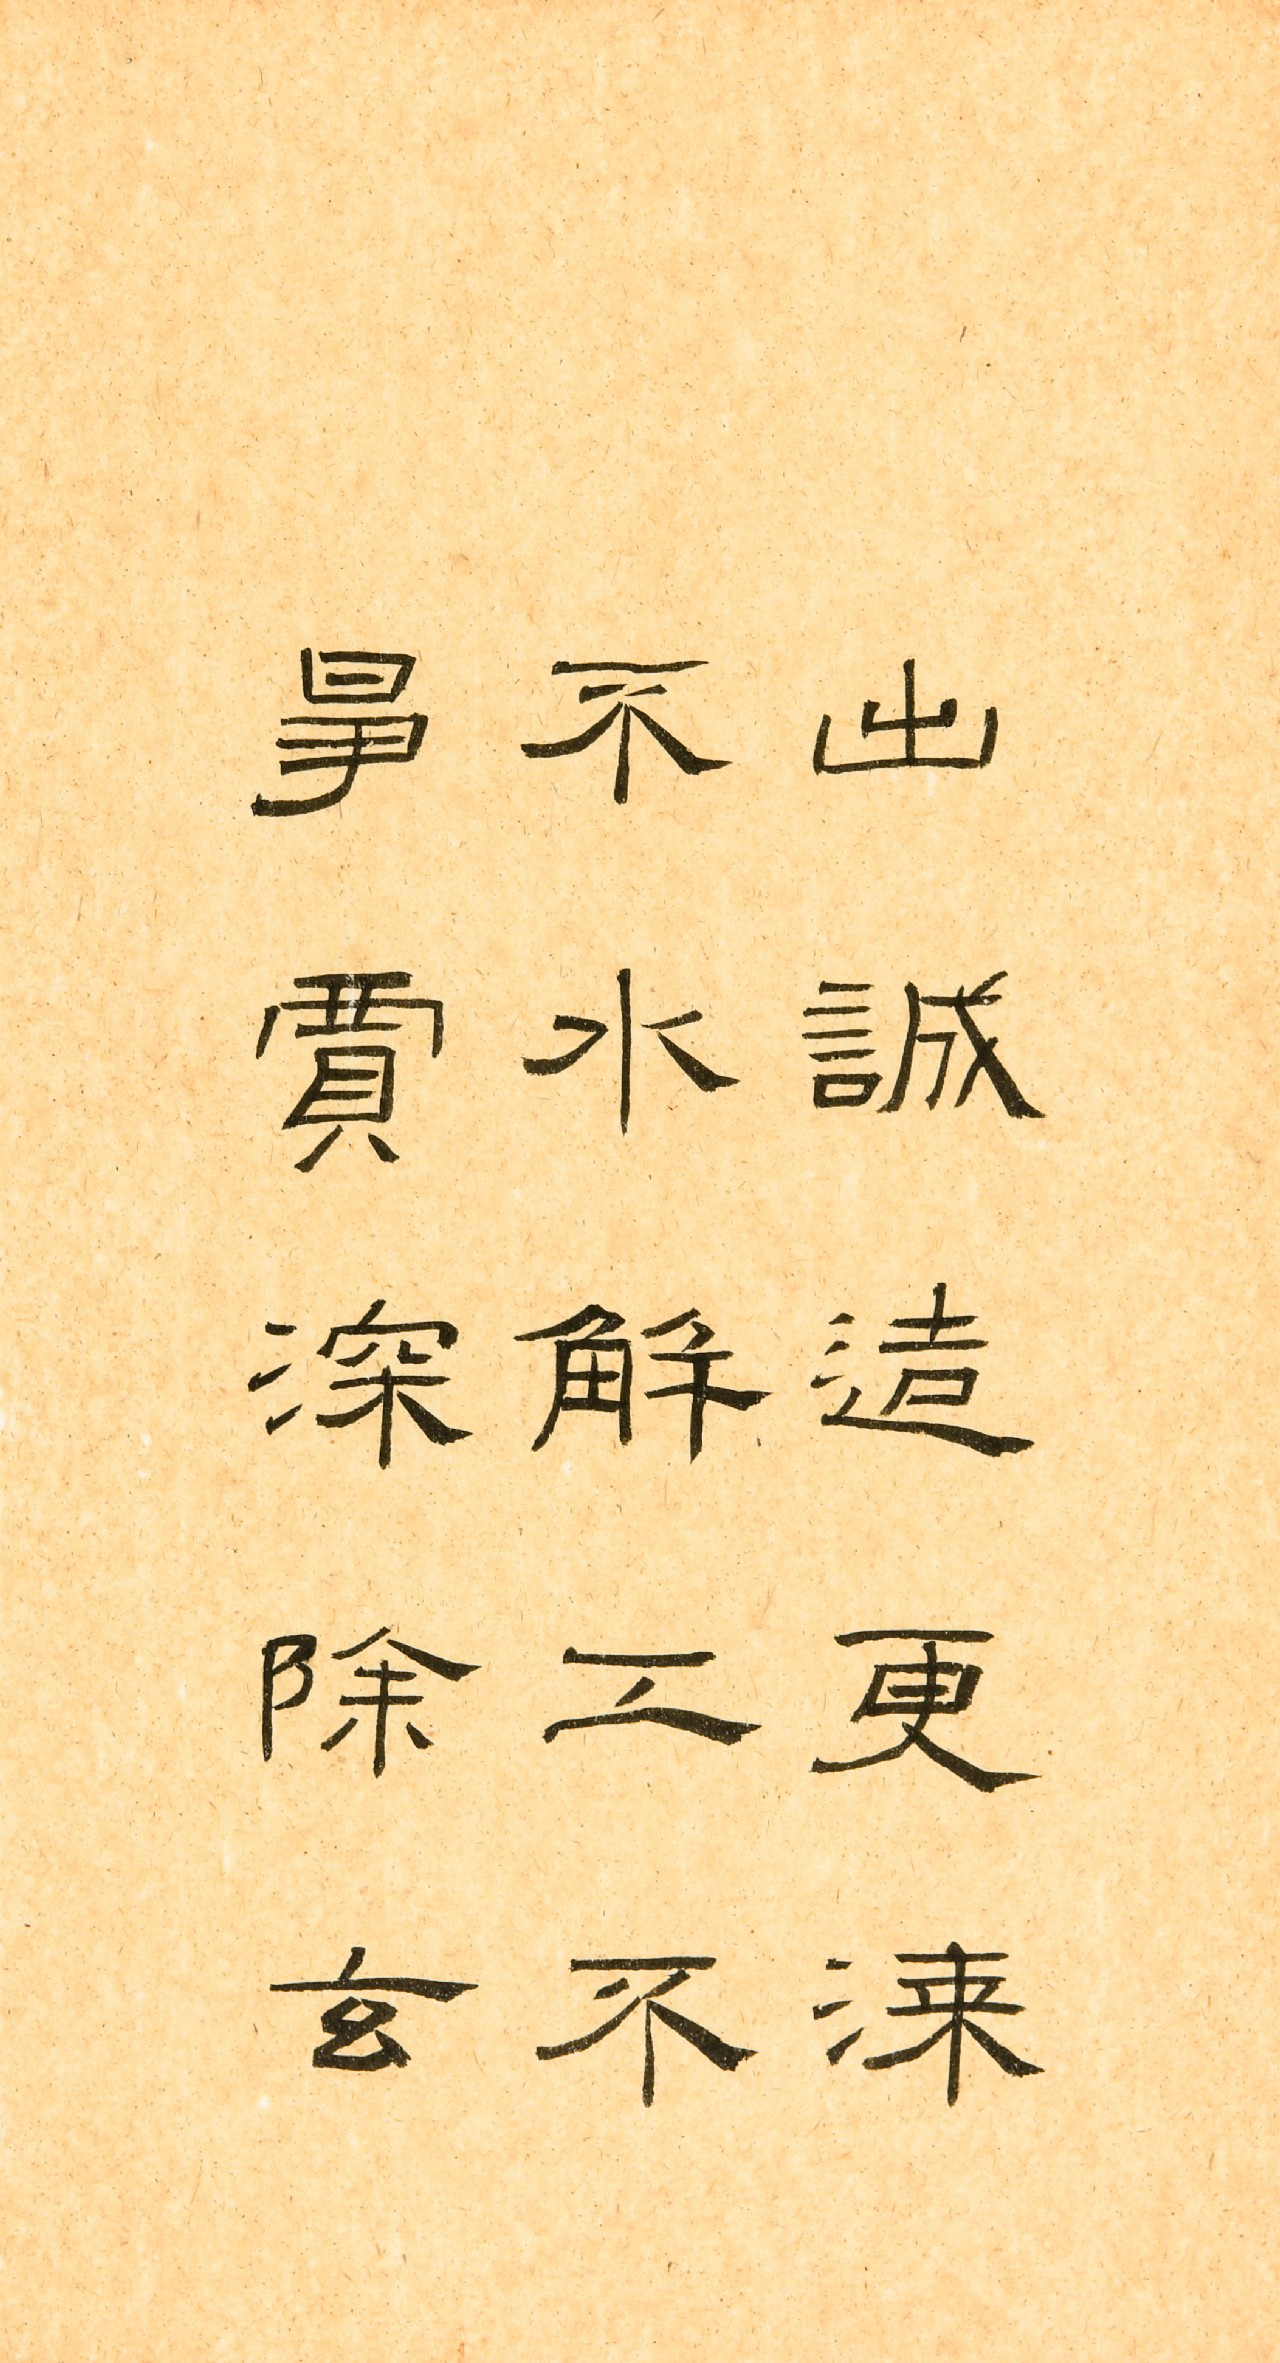 出誠造更涑
不水解工不
事賈深除玄